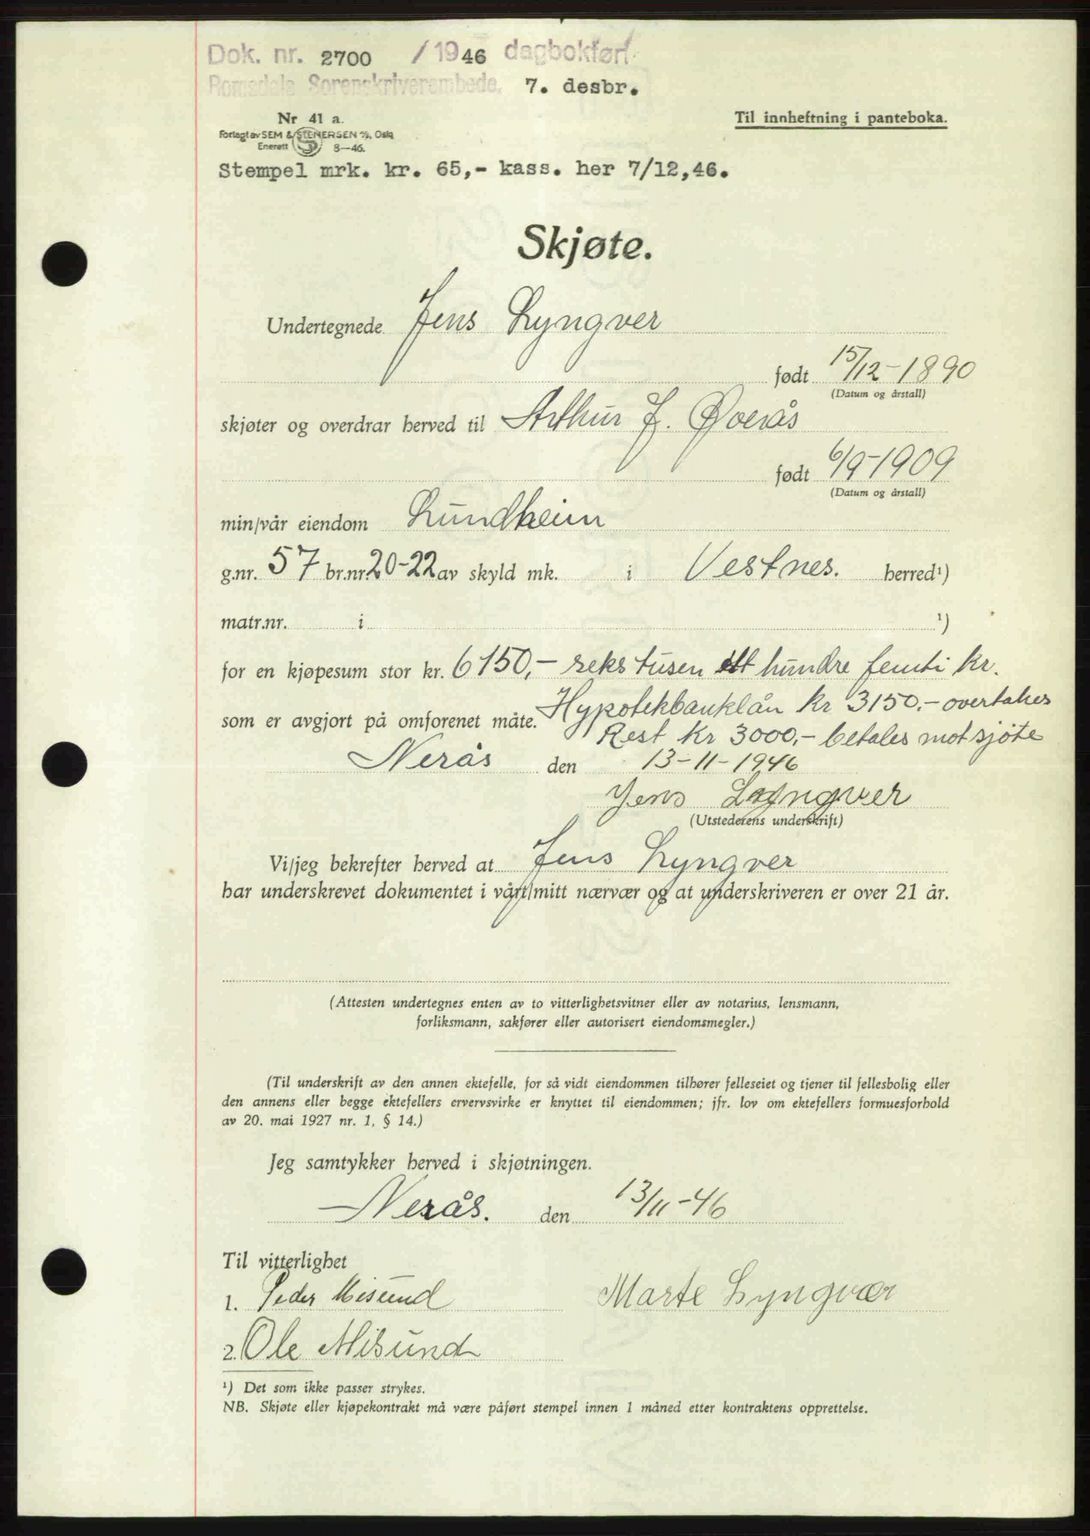 Dok. nr. 2700 / 1946 dagbokført
Romsdals Sorenskriverembede, 7. desbr.
Nr 41 a.
Forlagt av SEM & STENERSEN A/S, Oslo
Enerett 8—46.
Til innheftning i panteboka.
Stempel mrk. kr. 65,- kass. her 7/12,46.
Skjøte.
Undertegnede Jens Lyngver
født 15/12-1890
(Datum og årstall)
skjøter og overdrar herved til Arthur J. Øverås
født 6/9-1909
(Datum og årstall)
min/vår eiendom Lundheim
g.nr. 57 br.nr. 20-22 av skyld mk. i Vestnes. herred¹)
matr.nr. i ¹)
for en kjøpesum stor kr. 6150,- seks tusen ett hundre femti kr.
som er avgjort på omforenet måte. Hypotekbanklån kr 3150,- overtakes
Rest kr 3000,- betales mot sjöte
Nerås den 13-11-1946
Jens Lyngver
(Utstederens underskrift)
Vi/jeg bekrefter herved at Jens Lyngver
har underskrevet dokumentet i vårt/mitt nærvær og at underskriveren er over 21 år.
(Attesten undertegnes enten av to vitterlighetsvitner eller av notarius, lensmann,
forliksmann, sakfører eller autorisert eiendomsmegler.)
(Til underskrift av den annen ektefelle, for så vidt eiendommen tilhører felleseiet og tjener til fellesbolig eller
den annens eller begge ektefellers ervervsvirke er knyttet til eiendommen; jfr. lov om ektefellers formuesforhold
av 20. mai 1927 nr. 1, § 14.)
Jeg samtykker herved i skjøtningen.
Nerås. den 13/11-46
Til vitterlighet
1. Peder Misund Marte Lyngvær
2. Ole Misund
¹) Det som ikke passer strykes.
NB. Skjøte eller kjøpekontrakt må være påført stempel innen 1 måned etter kontraktens opprettelse.